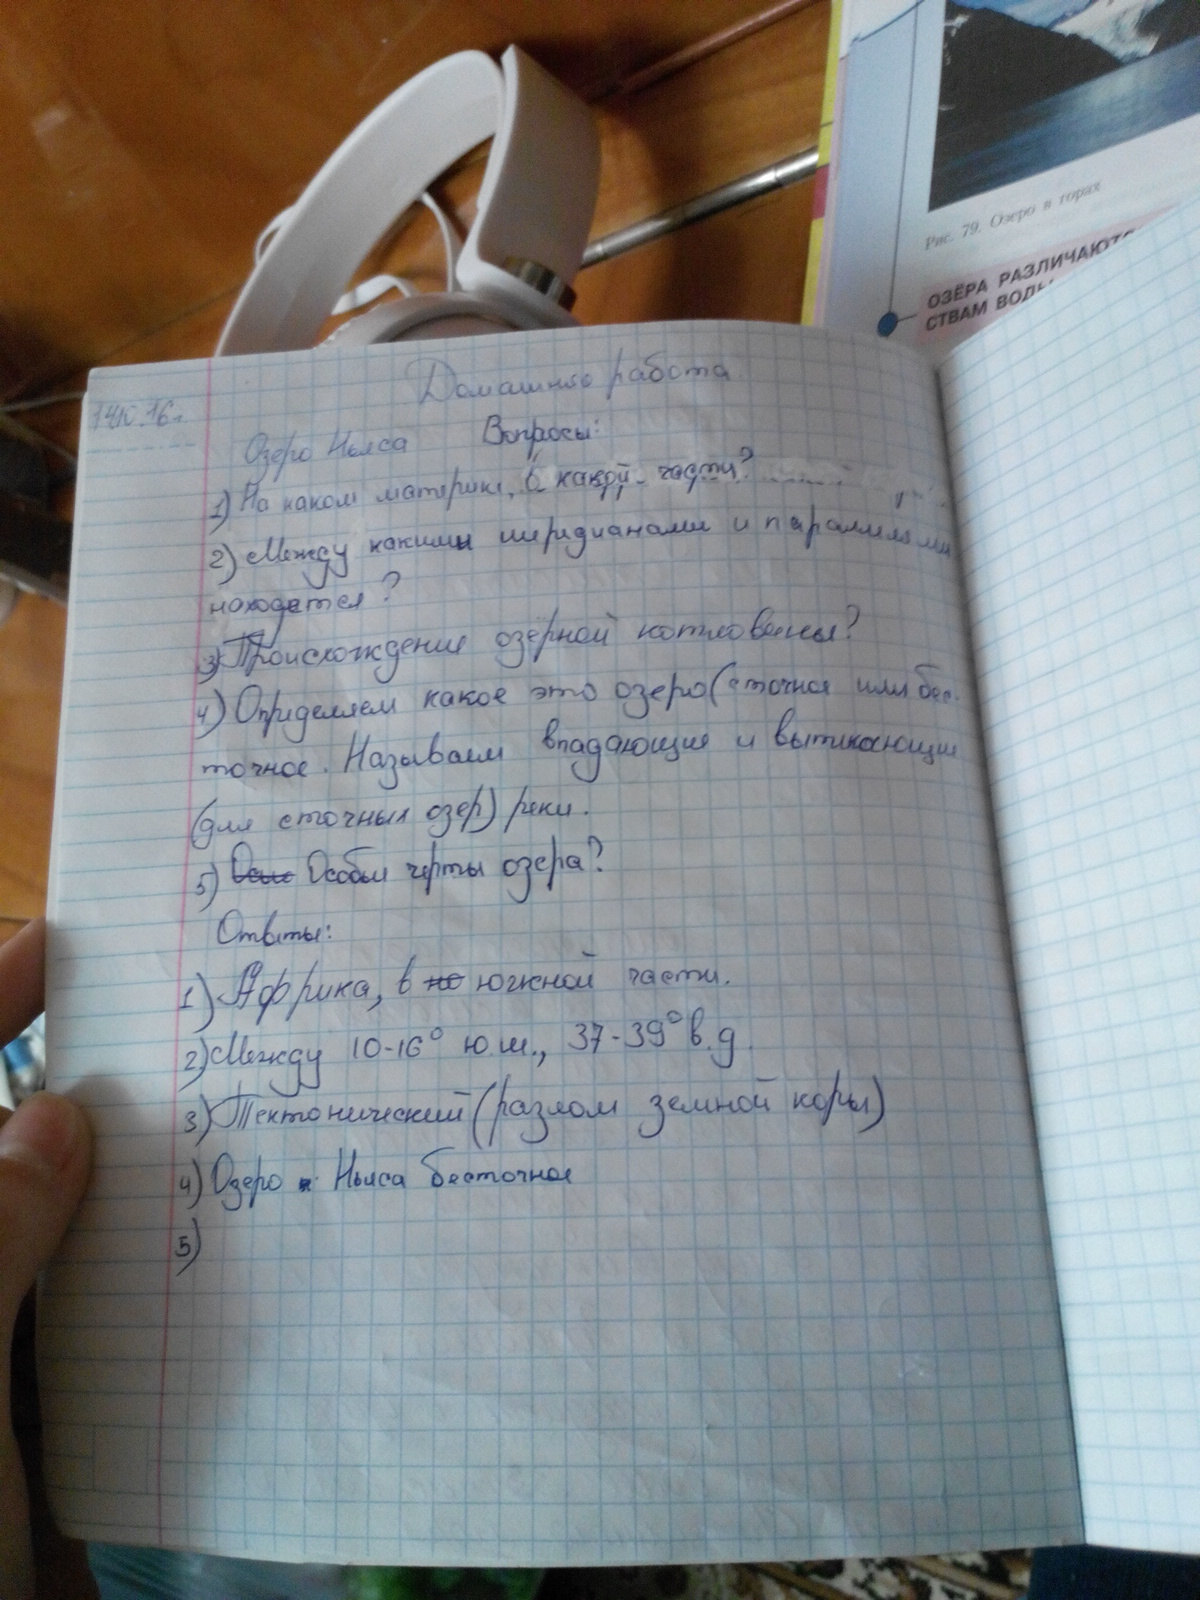 Рис. 79. Озеро в горах
ОЗЁРА РАЗЛИЧАЮТС
СТВАМ ВОДЫ
Домашняя работа
14.10.16г.
Озеро Ньяса Вопросы:
1) На каком материке, в какой части?
2) Между какими меридианами и параллелями
находится?
3) Происхождение озёрной котловины?
4) Определяем какое это озеро (сточное или бес-
точное. Называем впадающие и вытикающие
(для сточных озер) реки.
5) Особые черты озера?
Ответы:
1) Африка, в южной части.
2) Между 10-16° ю.ш., 37-39° в.д.
3) Тектонический (разлом земной коры)
4) Озеро Ньяса бесточное
5)